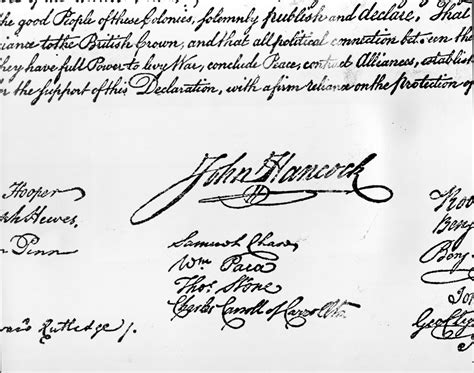 the good People of these Colonies, solemnly publish and declare, That
iance to the British Crown, and that all political connection bet
they have full Power to levy War, conclude Peace, contract Alliances, establish
for the support of this Declaration, with a firm reliance on the Protection of
John Hancock
Hooper
ph Hewes,
Penn
Samuel Chase
Wm Paca
Thos Stone
Charles Carroll of Carrollton
Edward Rutledge /.
Benj
Benj
Geo